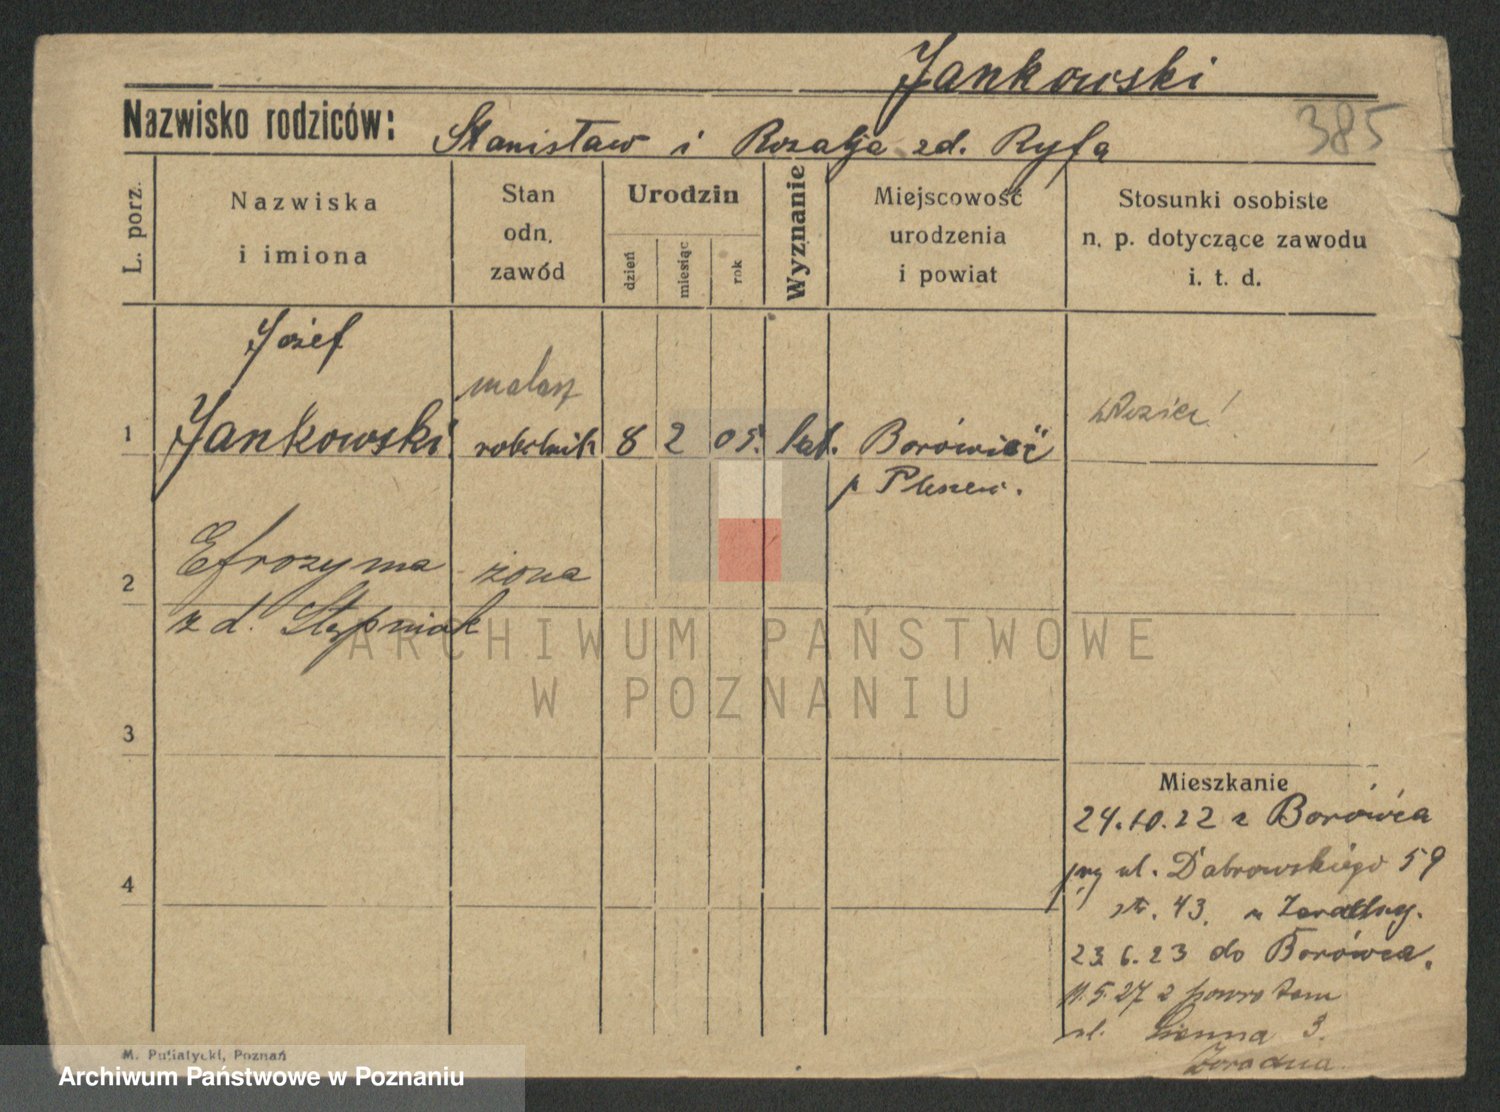 Jankowski
Nazwisko rodziców: Stanisław i Rozalja zd. Ryfa
385
L. porz.
Nazwiska
i imiona
Stan
odn.
zawód
Urodzin
dzień
miesiąc
rok
Wyznanie
Miejscowość
urodzenia
i powiat
Stosunki osobiste
n. p. dotyczące zawodu
i. t. d.
Józef
malarz
1 Jankowski robotnik 8 2 05. kat. Borówiec
p Pleszew.
2 Efrozyma żona
z d. Stępniak
ARCHIWUM PAŃSTWOWE
W POZNANIU
3
4
Mieszkanie
24.10.22 z Borówca
przy ul. Dabrowskiego 59
43.
23.6.23 do Borówca.
11.5.27 z powrotem
ul. Sienna 3.
M. Putiatycki, Poznań
Archiwum Państwowe w Poznaniu